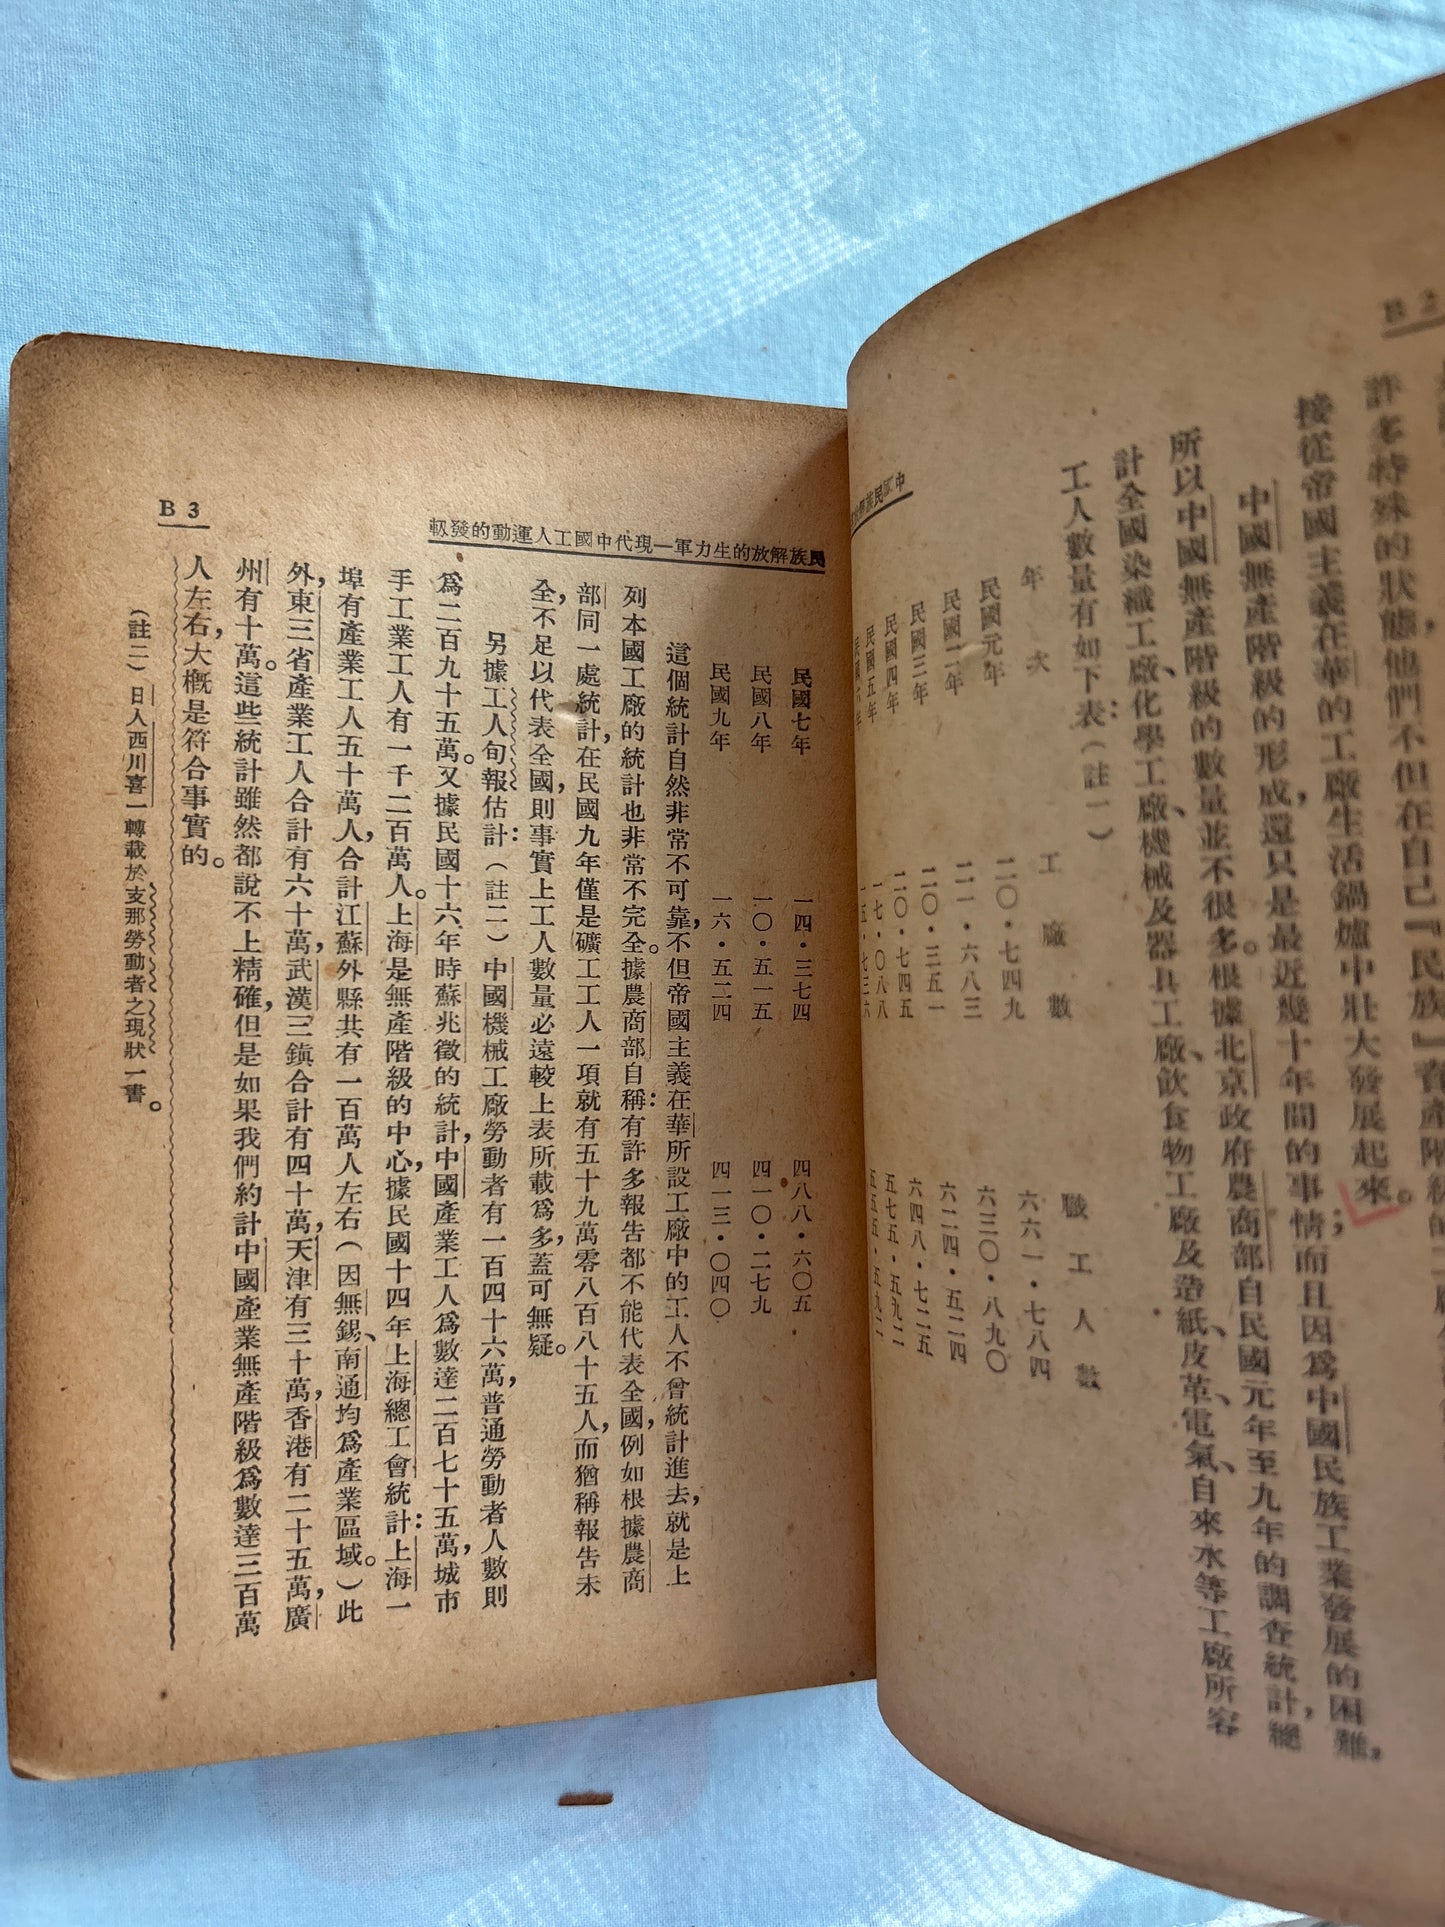 B 2
許多特殊的狀態，他們不但在自己『民族』資產階級的工廠
接從帝國主義在華的工廠生活鍋爐中壯大發展起來。
中國無產階級的形成，還只是最近幾十年間的事情；而且因爲中國民族工業發展的困難，
所以中國無產階級的數量並不很多。根據北京政府農商部自民國元年至九年的調查統計，總
計全國染織工廠、化學工廠、機械及器具工廠、飲食物工廠及造紙、皮革、電氣、自來水等工廠所容
工人數量有如下表：（註一）
年次 工廠數 職工人數
民國元年 二〇・七四九 六六一・七八四
民國二年 二一・六八三 六三〇・八九〇
民國三年 二〇・三五一 六二四・五二四
民國四年 二〇・七四五 六四八・七二五
民國五年 一七・〇八八 五七五・五九二
民國六年 一五・七三六 五五五・五九二
民族解放的生力軍—現代中國工人運動的發軔
B 3
民國七年 一四・三七四 四八八・六〇五
民國八年 一〇・五一五 四一〇・二七九
民國九年 一六・五二四 四一三・〇四〇
這個統計自然非常不可靠，不但帝國主義在華所設工廠中的工人不曾統計進去，就是上
列本國工廠的統計也非常不完全。據農商部自稱：有許多報告都不能代表全國，例如根據農商
部同一處統計，在民國九年僅是礦工工人一項就有五十九萬零八百八十五人，而猶稱報告未
全，不足以代表全國，則事實上工人數量必遠較上表所載爲多，蓋可無疑。
另據工人旬報估計：（註二）中國機械工廠勞動者有一百四十六萬，普通勞動者人數則
爲二百九十五萬。又據民國十六年時蘇兆徵的統計，中國產業工人爲數達二百七十五萬，城市
手工業工人有一千二百萬人。上海是無產階級的中心，據民國十四年上海總工會統計：上海一
埠有產業工人五十萬人，合計江蘇外縣共有一百萬人左右（因無錫、南通均爲產業區域。）此
外，東三省產業工人合計有六十萬，武漢三鎮合計有四十萬，天津有三十萬，香港有二十五萬，廣
州有十萬。這些統計雖然都說不上精確，但是如果我們約計中國產業無產階級爲數達三百萬
人左右，大概是符合事實的。
（註二）日人西川喜一轉載於支那勞動者之現狀一書。